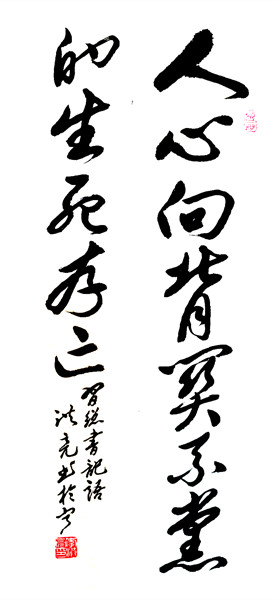 人心向背関系党
的生死存亡
习总书记语
洪亮书於宁